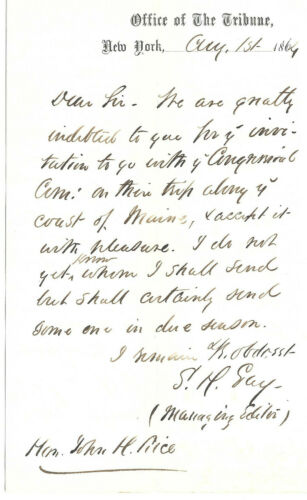 Office of The Tribune,
New York, Aug. 1st 1864
Dear Sir - We are greatly
indebted to you for yr invi-
tation to go with ye Congressional
Com: on their trip along ye
coast of Maine, & accept it
with pleasure. I do not
yet know whom I shall send
but shall certainly send
some one in due season.
I remain Yr. obdt. svt
S. H. Gay -
(Managing Editor)
Hon. John H. Rice